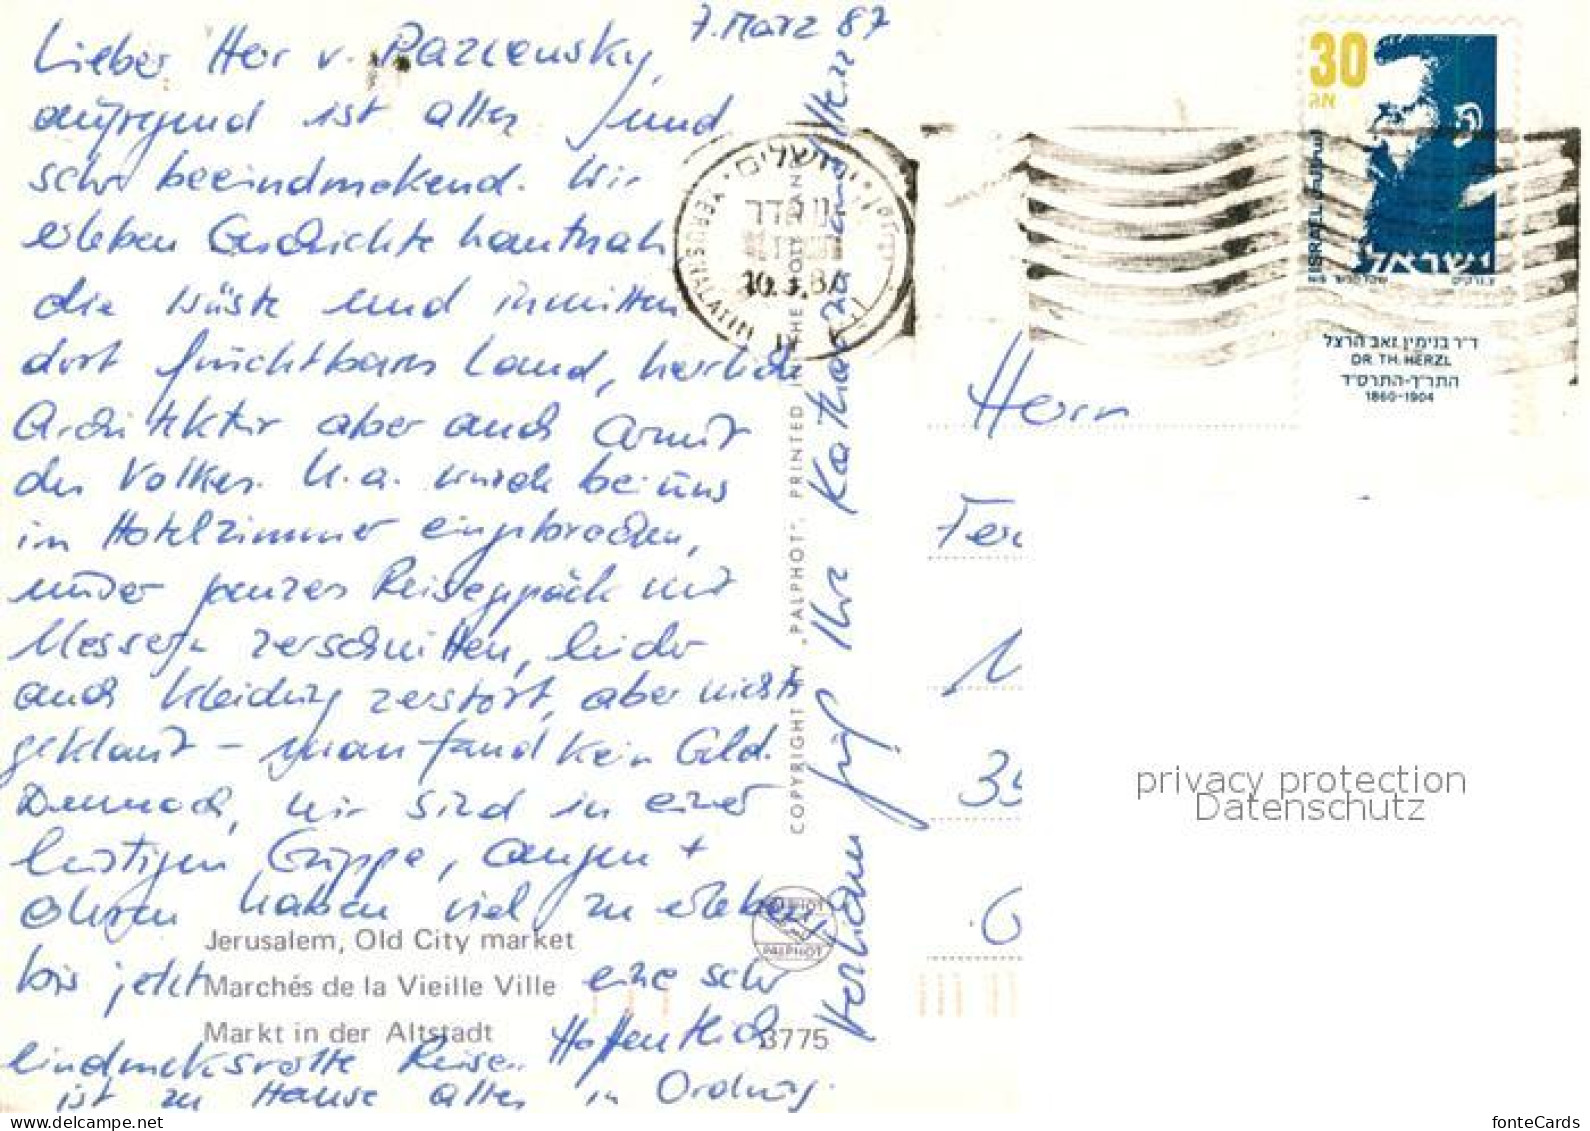 7. März 87
Lieber Herr v. Pazcensky,
aufregend ist alles und
sehr beeindruckend. Wir
erleben Geschichte hautnah
die Wüste und inmitten
dort fruchtbares Land, herrliche
Architektur aber auch Armut
des Volkes. U.a. wurde bei uns
im Hotelzimmer eingebrochen,
unser ganzes Reisegepäck mit
Messern zerschnitten, leider
auch Kleidung zerstört, aber nichts
geklaut - man fand kein Geld.
Dennoch, wir sind in einer
lustigen Gruppe, Augen +
Ohren haben viel zu erleben
bis jetzt eine sehr
eindrucksvolle Reise. Hoffentlich
ist zu Hause alles in Ordnung.
Jerusalem, Old City market
Marchés de la Vieille Ville
Markt in der Altstadt
3775
PALPHOT
COPYRIGHT BY "PALPHOT", PRINTED IN THE HOLY LAND
Ihr Katharina Herz
ירושלים
YERUSHALAYIM
10.3.87
30
אג
ISRAEL
ישראל
ד"ר בנימין זאב הרצל
DR. TH. HERZL
התר"ך-התרס"ד
1860-1904
Herr
35
privacy protection
Datenschutz
fonteCards